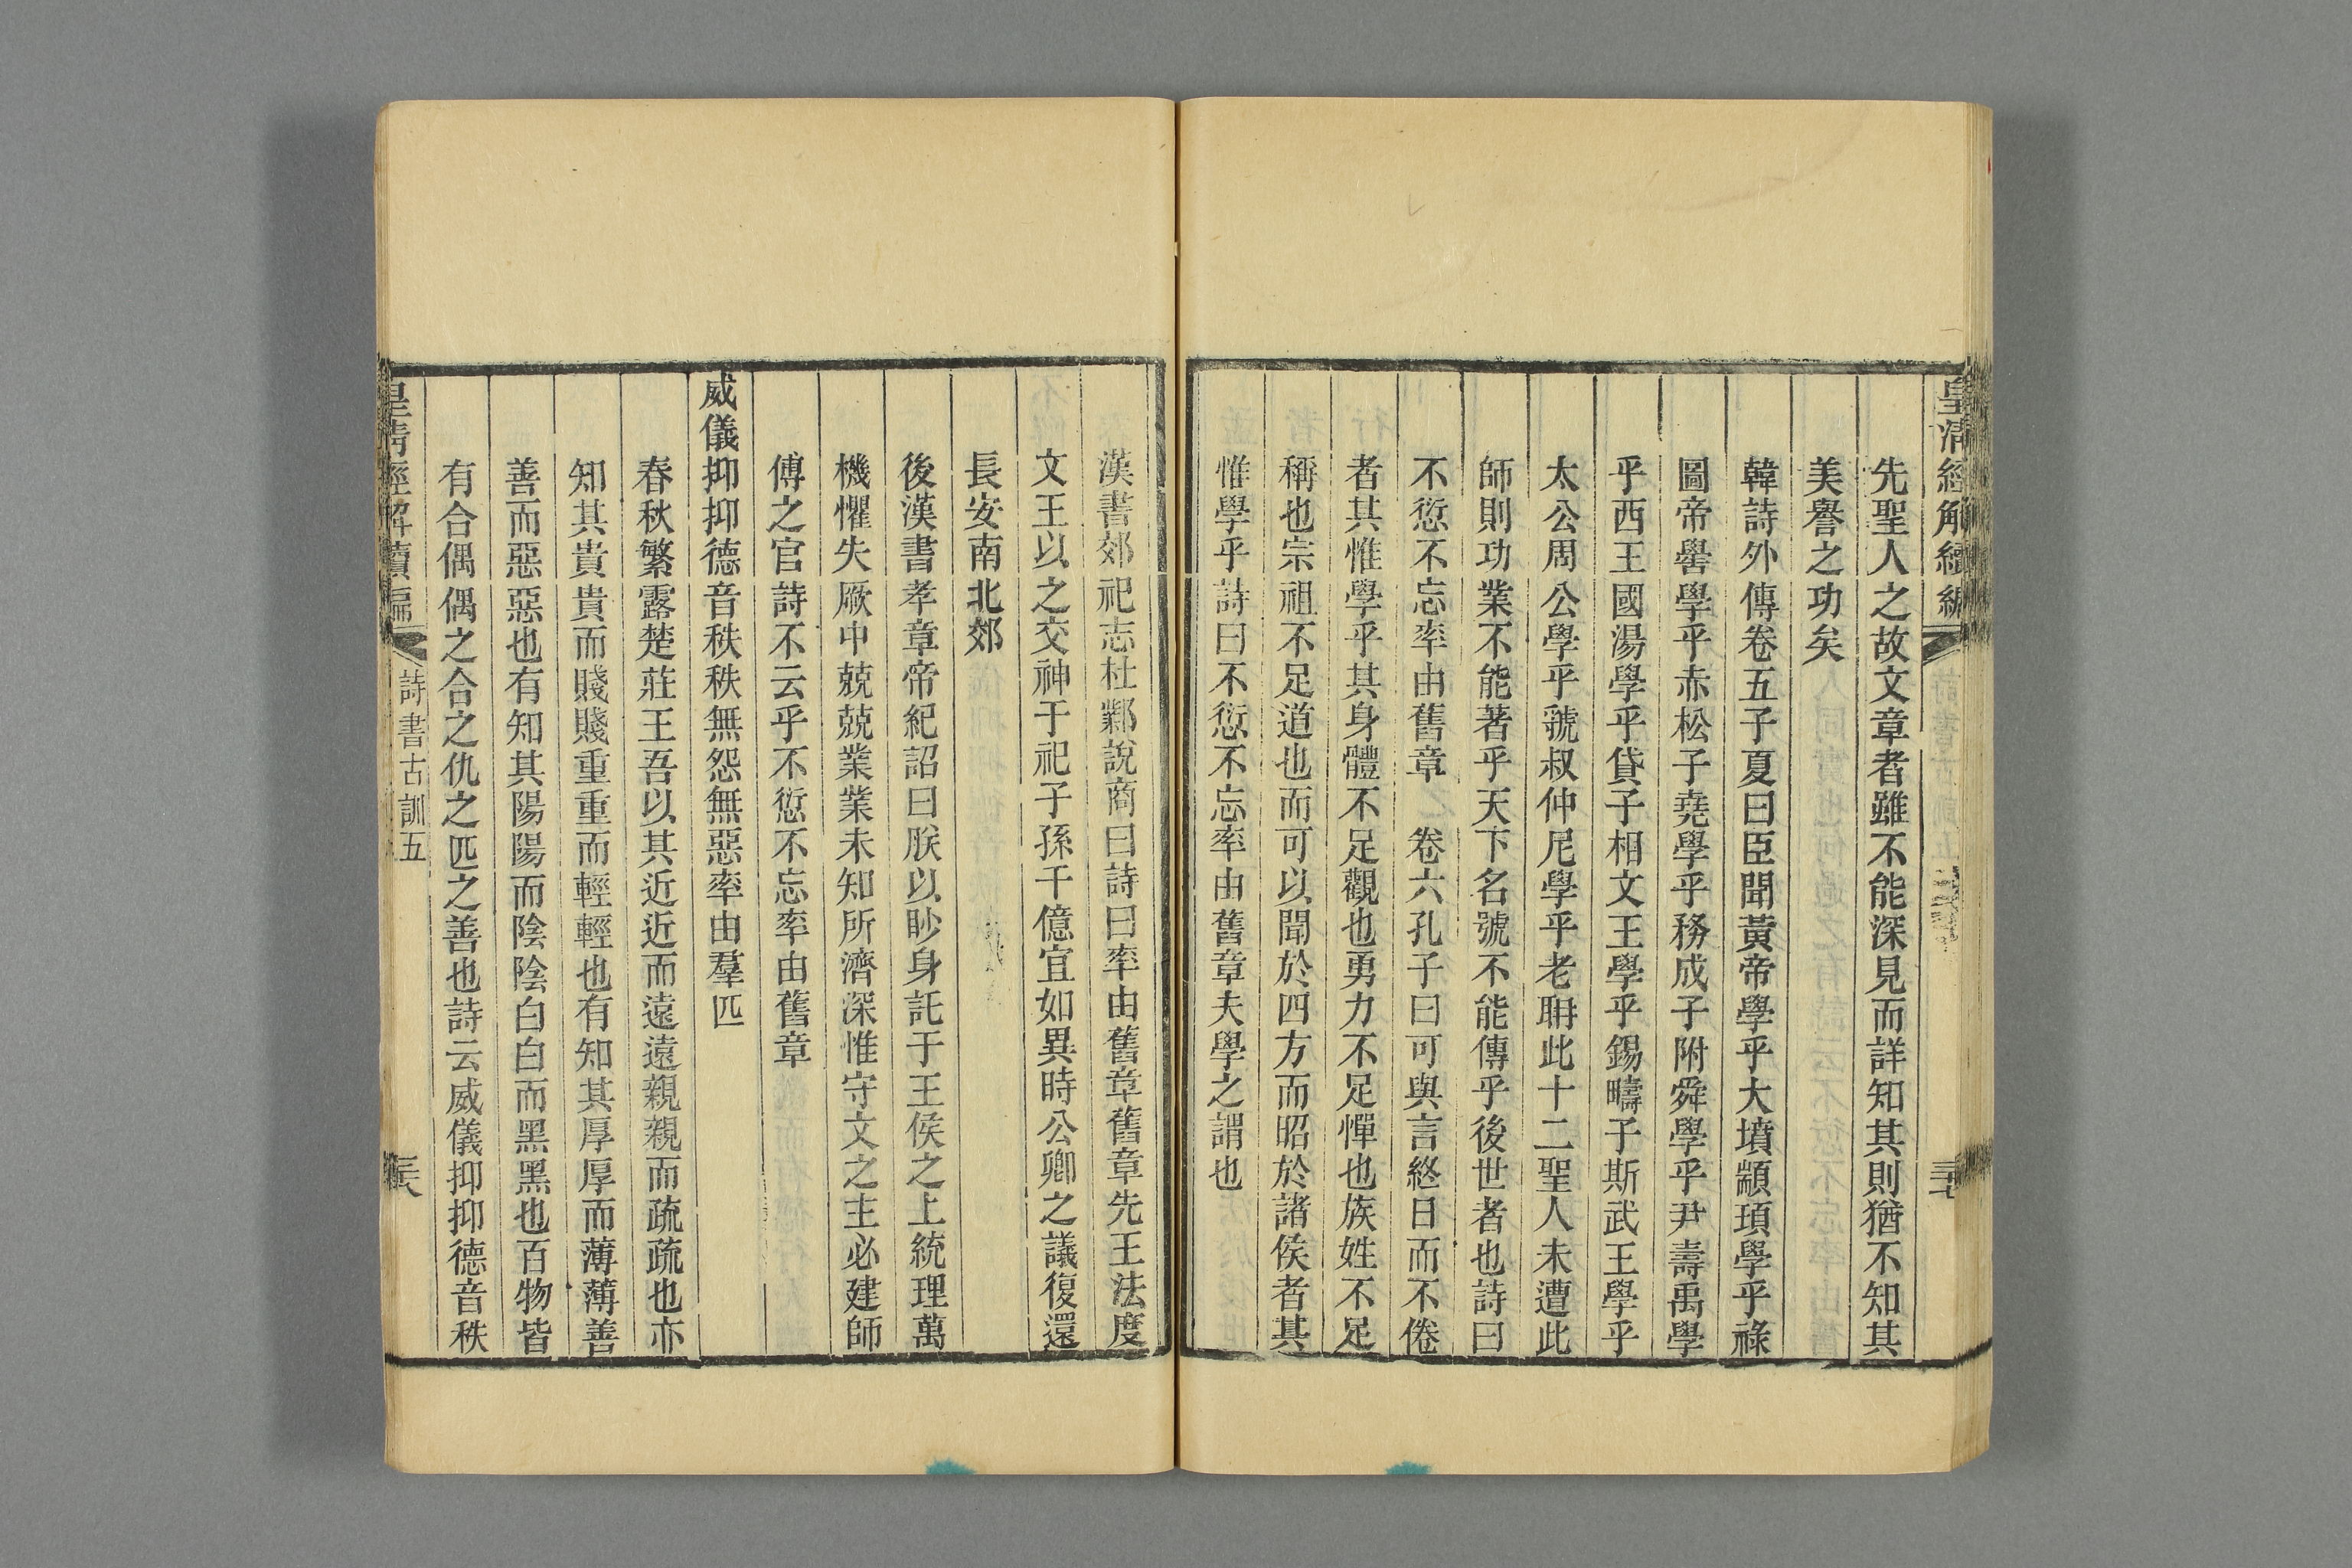 皇清經解續編
先聖人之故文章者雖不能深見而詳知其則猶不知其
美譽之功矣
韓詩外傳卷五子夏曰臣聞黃帝學乎大墳顓頊學乎祿
圖帝嚳學乎赤松子堯學乎務成子附舜學乎尹壽禹學
乎西王國湯學乎貸子相文王學乎錫疇子斯武王學乎
太公周公學乎虢叔仲尼學乎老耼此十二聖人未遭此
師則功業不能著乎天下名號不能傳乎後世者也詩曰
不愆不忘率由舊章 卷六孔子曰可與言終日而不倦
者其惟學乎其身體不足觀也勇力不足憚也族姓不足
稱也宗祖不足道也而可以聞於四方而昭於諸侯者其
惟學乎詩曰不愆不忘率由舊章夫學之謂也
漢書郊祀志杜鄴說商曰詩曰率由舊章舊章先王法度
文王以之交神于祀子孫千億宜如異時公卿之議復還
長安南北郊
後漢書孝章帝紀詔曰朕以眇身託于王侯之上統理萬
機懼失厥中兢兢業業未知所濟深惟守文之主必建師
傅之官詩不云乎不愆不忘率由舊章
威儀抑抑德音秩秩無怨無惡率由羣匹
春秋繁露楚莊王吾以其近近而遠遠親親而疏疏也亦
知其貴貴而賤賤重重而輕輕也有知其厚厚而薄薄善
善而惡惡也有知其陽陽而陰陰白白而黑黑也百物皆
有合偶偶之合之仇之匹之善也詩云威儀抑抑德音秩
皇清經解續編 詩書古訓五